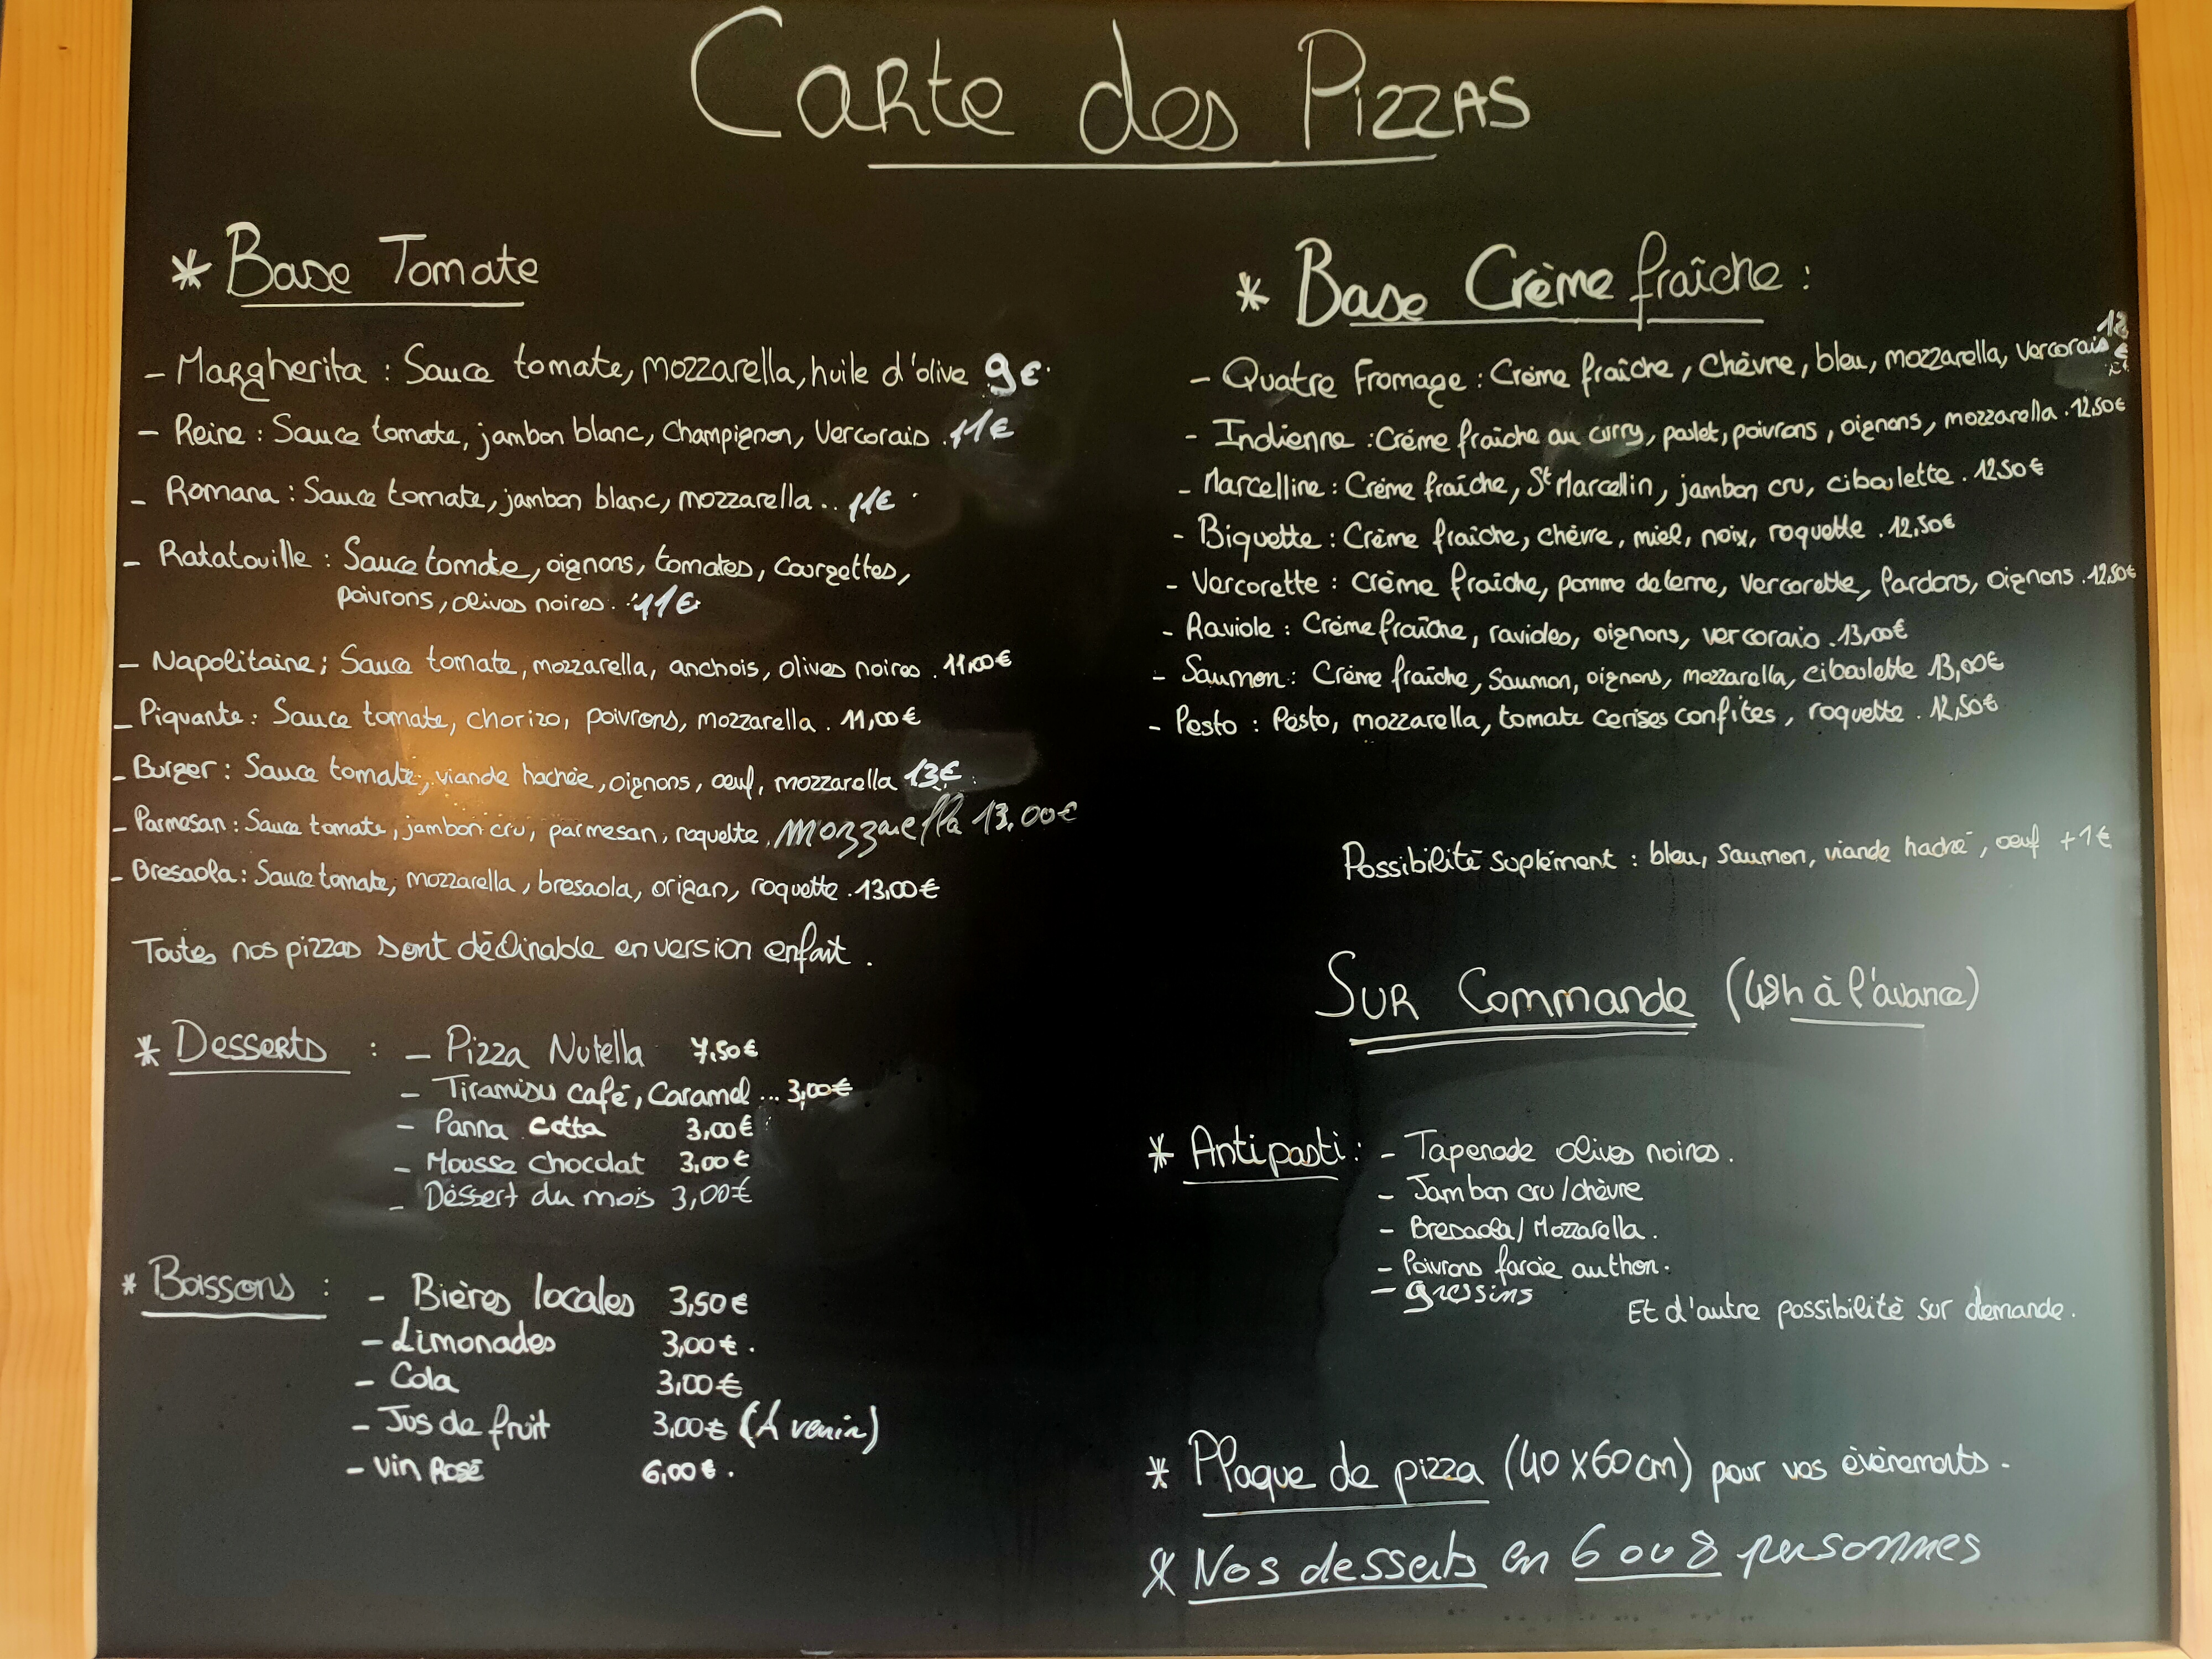 Carte des Pizzas
* Base Tomate
- Margherita : Sauce tomate, mozzarella, huile d'olive 9€.
- Reine : Sauce tomate, jambon blanc, champignon, Vercorais . 11€
- Romana : Sauce tomate, jambon blanc, mozzarella .. 11€ .
- Ratatouille : Sauce tomate, oignons, tomates, courgettes,
poivrons, olives noires. . 11€.
- Napolitaine ; Sauce tomate, mozzarella, anchois, olives noires . 11,00€
- Piquante : Sauce tomate, chorizo, poivrons, mozzarella . 11,00€
- Burger : Sauce tomate, viande hachée, oignons, oeuf, mozzarella 13€.
- Parmesan : Sauce tomate, jambon cru, parmesan, roquette, mozzarella 13,00€
- Bresaola : Sauce tomate, mozzarella, bresaola, origan, roquette . 13,00€
Toutes nos pizzas sont déclinable en version enfait .
* Desserts : - Pizza Nutella 7,50€
- Tiramisu café, Caramel ... 3,00€
- Panna cotta 3,00€
- Mousse chocolat 3,00€
- Déssert du mois 3,00€
* Boissons : - Bières locales 3,50€
- Limonades 3,00€ .
- Cola 3,00€
- Jus de fruit 3,00€ (A venir)
- Vin Rosé 6,00€ .
* Base Crème fraîche :
- Quatre Fromage : Crème fraîche, Chèvre, bleu, mozzarella, vercorais €
- Indienne : Crème fraîche au curry, poulet, poivrons, oignons, mozzarella . 12,50€
- Marcelline : Crème fraîche, St Marcellin, jambon cru, ciboulette . 12,50€
- Biquette : Crème fraîche, chèvre, miel, noix, roquette . 12,50€
- Vercorette : Crème fraîche, pomme de terre, vercorette, lardons, oignons . 12,50€
- Raviole : Crème fraîche, ravioles, oignons, vercorais . 13,00€
- Saumon : Crème fraîche, saumon, oignons, mozzarella, ciboulette 13,00€
- Pesto : Pesto, mozzarella, tomate cerises confites, roquette . 12,50€
Possibilité suplément : bleu, saumon, viande haché, oeuf +1€
Sur Commande (48h à l'avance)
* Antipasti : - Tapenade olives noires.
- Jambon cru / chèvre
- Bresaola / Mozzarella .
- Poivrons farcie au thon.
- gressins
Et d'autre possibilité sur demande.
* Plaque de pizza (40 x 60 cm) pour vos évènements.
* Nos desserts en 6 ou 8 personnes